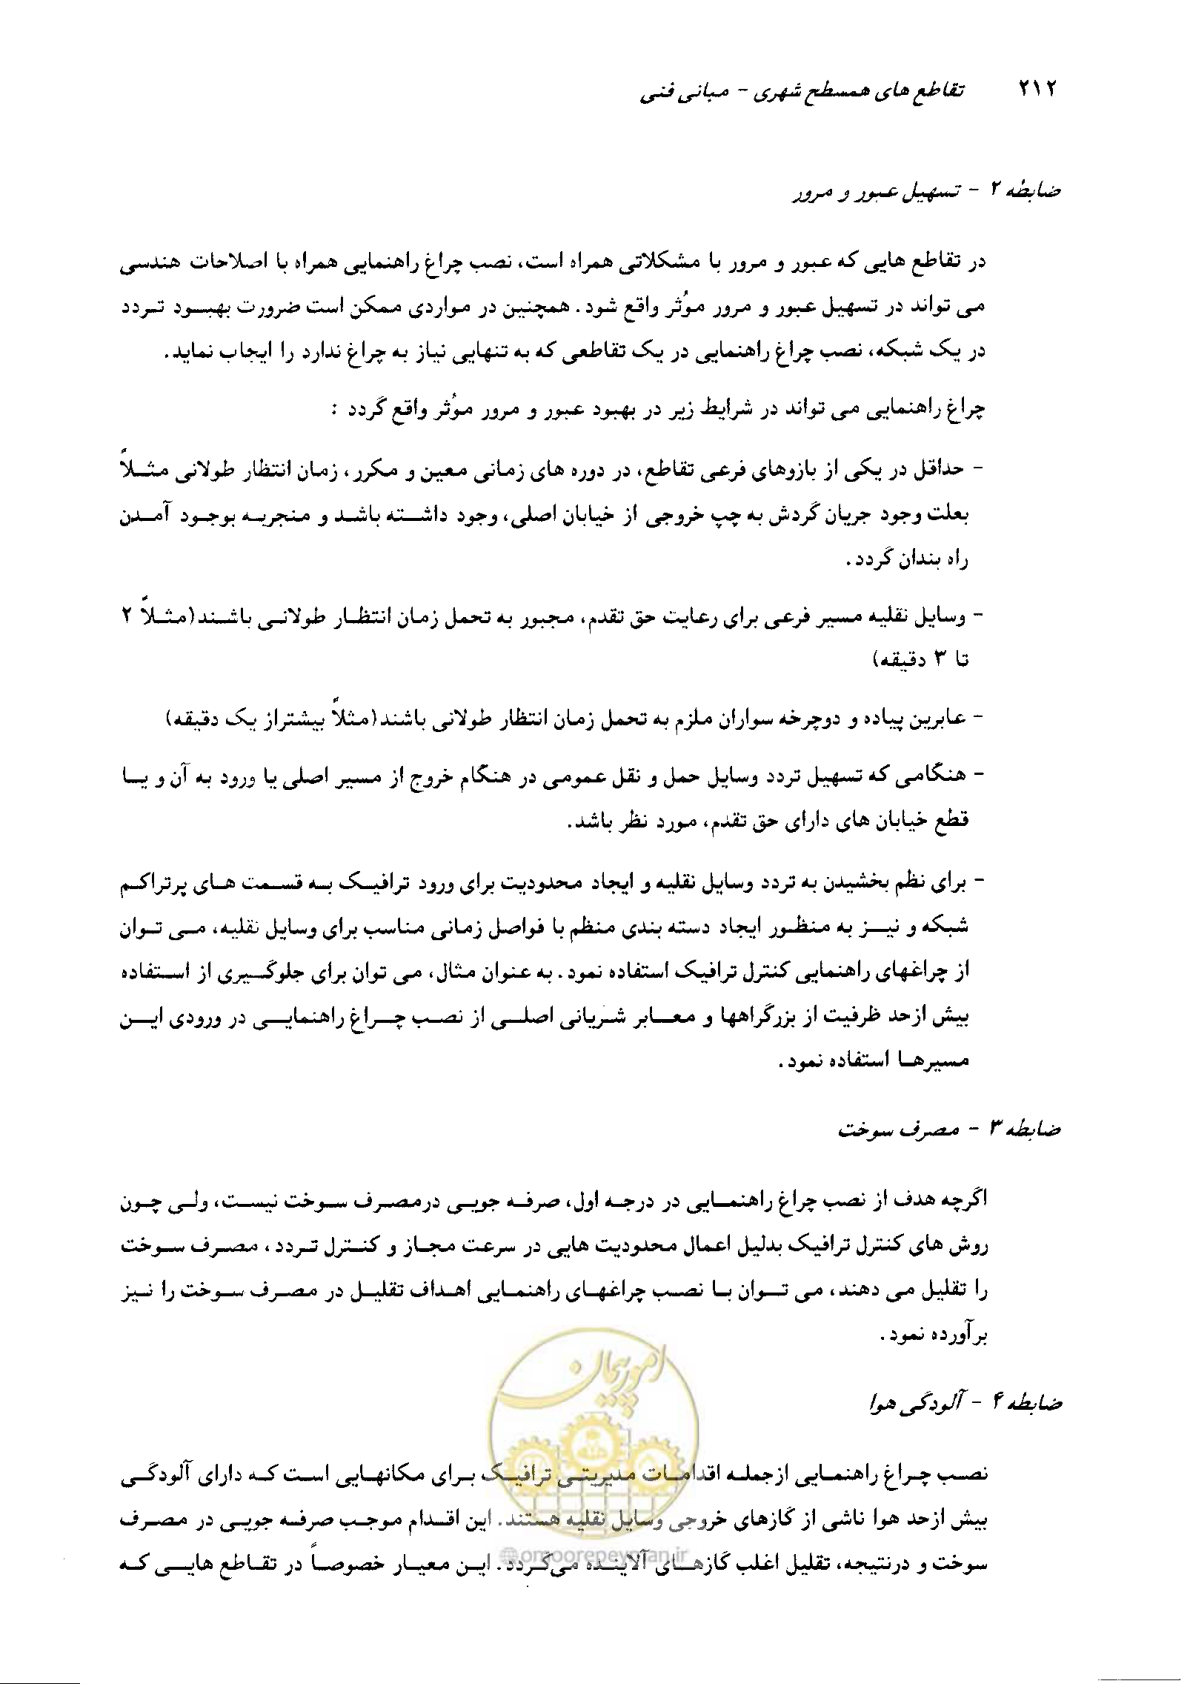 ۲۱۲ تقاطع های همسطح شهری - مبانی فنی
ضابطه ۲ - تسهیل عبور و مرور
در تقاطع هایی که عبور و مرور با مشکلاتی همراه است، نصب چراغ راهنمایی همراه با اصلاحات هندسی
می تواند در تسهیل عبور و مرور مؤثر واقع شود. همچنین در مواردی ممکن است ضرورت بهبود تردد
در یک شبکه، نصب چراغ راهنمایی در یک تقاطعی که به تنهایی نیاز به چراغ ندارد را ایجاب نماید.
چراغ راهنمایی می تواند در شرایط زیر در بهبود عبور و مرور مؤثر واقع گردد :
- حداقل در یکی از بازوهای فرعی تقاطع، در دوره های زمانی معین و مکرر، زمان انتظار طولانی مثلاً
بعلت وجود جریان گردش به چپ خروجی از خیابان اصلی، وجود داشته باشد و منجربه بوجود آمدن
راه بندان گردد.
- وسایل نقلیه مسیر فرعی برای رعایت حق تقدم، مجبور به تحمل زمان انتظار طولانی باشند(مثلاً ۲
تا ۳ دقیقه)
- عابرین پیاده و دوچرخه سواران ملزم به تحمل زمان انتظار طولانی باشند(مثلاً بیشتراز یک دقیقه)
- هنگامی که تسهیل تردد وسایل حمل و نقل عمومی در هنگام خروج از مسیر اصلی یا ورود به آن و یا
قطع خیابان های دارای حق تقدم، مورد نظر باشد.
- برای نظم بخشیدن به تردد وسایل نقلیه و ایجاد محدودیت برای ورود ترافیک به قسمت های پرتراکم
شبکه و نیز به منظور ایجاد دسته بندی منظم با فواصل زمانی مناسب برای وسایل نقلیه، می توان
از چراغهای راهنمایی کنترل ترافیک استفاده نمود. به عنوان مثال، می توان برای جلوگیری از استفاده
بیش ازحد ظرفیت از بزرگراهها و معابر شریانی اصلی از نصب چراغ راهنمایی در ورودی این
مسیرها استفاده نمود.
ضابطه ۳ - مصرف سوخت
اگرچه هدف از نصب چراغ راهنمایی در درجه اول، صرفه جویی درمصرف سوخت نیست، ولی چون
روش های کنترل ترافیک بدلیل اعمال محدودیت هایی در سرعت مجاز و کنترل تردد، مصرف سوخت
را تقلیل می دهند، می توان با نصب چراغهای راهنمایی اهداف تقلیل در مصرف سوخت را نیز
برآورده نمود.
امور پیمان
ضابطه ۴ - آلودگی هوا
نصب چراغ راهنمایی ازجمله اقدامات مدیریتی ترافیک برای مکانهایی است که دارای آلودگی
بیش ازحد هوا ناشی از گازهای خروجی وسایل نقلیه هستند. این اقدام موجب صرفه جویی در مصرف
سوخت و درنتیجه، تقلیل اغلب گازهای آلاینده می‌گردد. این معیار خصوصاً در تقاطع هایی که
@omoorepeyman.ir